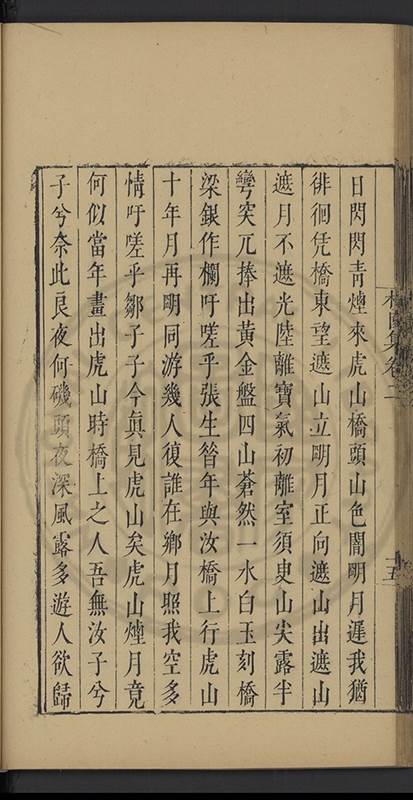 日閃閃青煙來虎山橋頭山色闇明月遲我猶
徘徊凭橋東望遮山立明月正向遮山出遮山
遮月不遮光陸離寶氣初離室須臾山尖露半
彎突兀捧出黃金盤四山蒼然一水白玉刻橋
梁銀作欄吁嗟乎張生昝年與汝橋上行虎山
十年月再明同游幾人復誰在鄉月照我空多
情吁嗟乎鄒子子今眞見虎山矣虎山煙月竟
何似當年畫出虎山時橋上之人吾無汝子兮
子兮奈此良夜何磯頭夜深風露多遊人欲歸
集卷二
十五